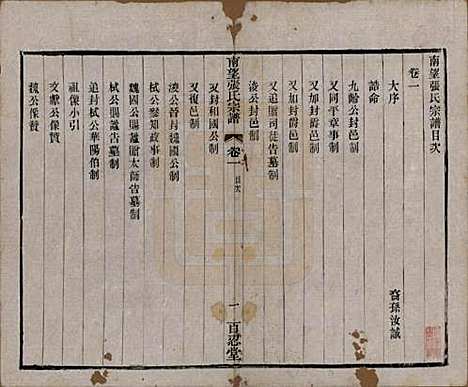 南望張氏宗譜目次
卷一
大序 裔孫汝誠
誥命
九齡公封邑制
又同平章事制
又加封爵邑制
又如封爵邑制
又追贈司徒告墓制
淩公封邑制
南望張氏宗譜 卷一 目次 一 百忍堂
又封和國公制
又復邑制
淩公晉封魏國公制
栻公參知政事制
魏國公賜謚贈太師告墓制
栻公賜謚告墓制
追封栻公華陽伯制
祖像小引
文獻公像贊
魏公像贊